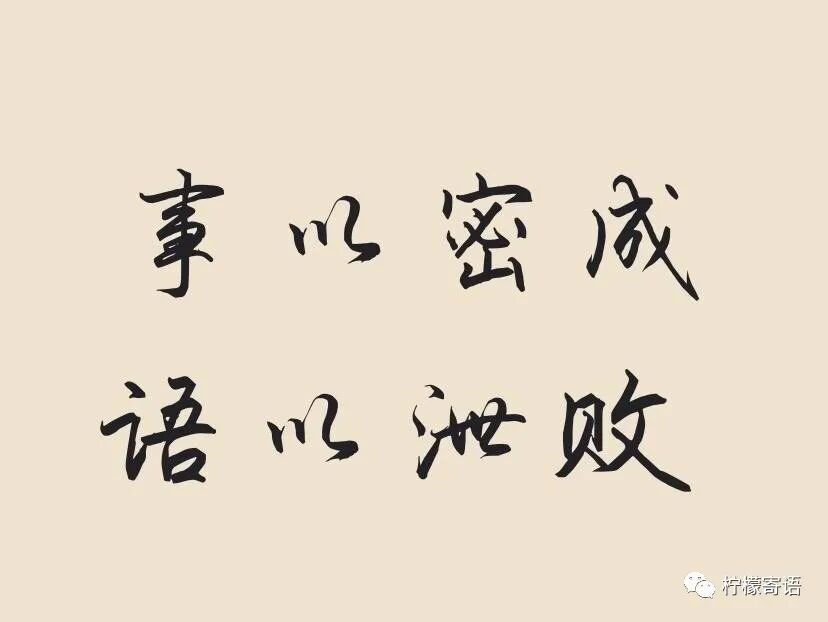 事以密成
语以泄败
柠檬寄语